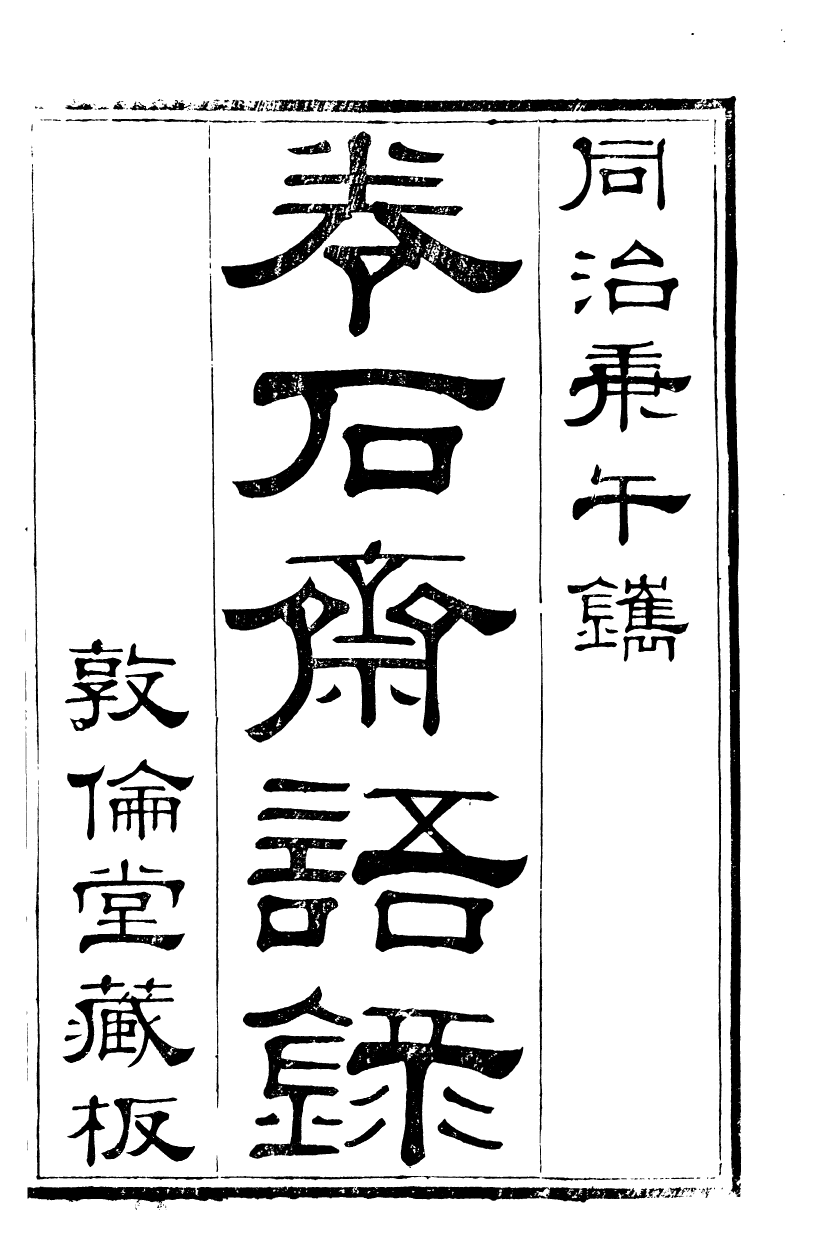 同治庚午鐫
卷石齋語錄
敦倫堂藏板